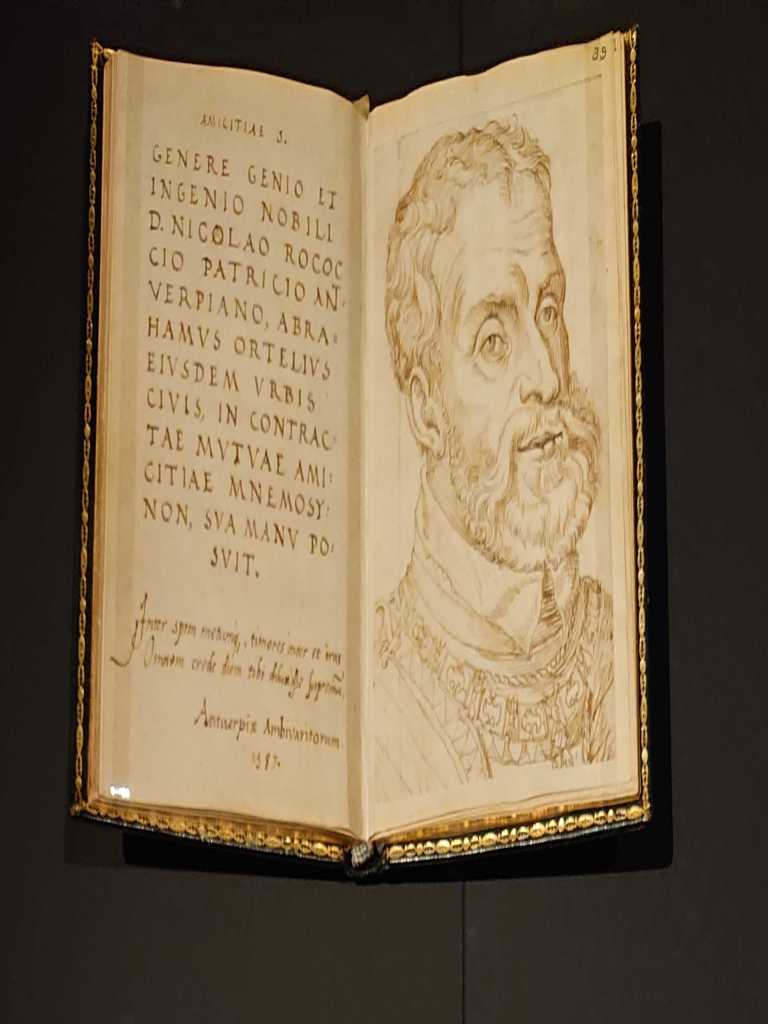 AMICITIAE S.
GENERE GENIO ET
INGENIO NOBILI
D. NICOLAO ROCOC
CIO PATRICIO AÑ-
VERPIANO, ABRA-
HAMVS ORTELIVS
EIVSDEM VRBIS
CIVIS, IN CONTRAC-
TAE MVTVAE AMI-
CITIAE MNEMOSY-
NON, SVA MANV PO-
SVIT.
Inter spem metumq, timores inter et iras
Omnem crede diem tibi diluxisse supremū.
Antuerpiæ Ambivaritorum.
39